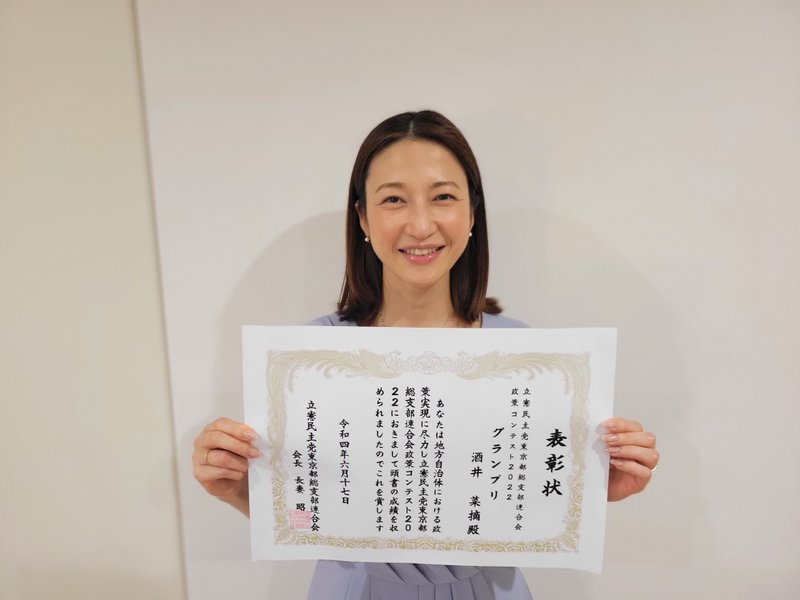 表彰状
立憲民主党東京都総支部連合会
政策コンテスト2022
グランプリ
酒井 菜摘殿
あなたは地方自治体における政
策実現に尽力し立憲民主党東京都
総支部連合会政策コンテスト20
22におきまして頭書の成績を収
められましたのでこれを賞します
令和四年六月十七日
立憲民主党東京都総支部連合会
会長 長妻 昭